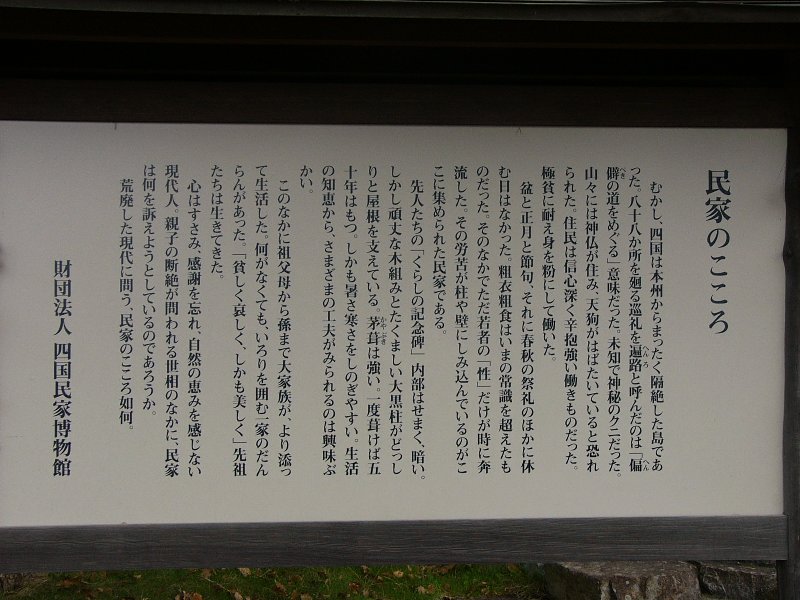 民家のこころ
むかし、四国は本州からまったく隔絶した島であ
った。八十八か所を廻る巡礼を遍路と呼んだのは「偏
僻の道をめぐる」意味だった。未知で神秘のクニだった。
山々には神仏が住み、天狗がはばたいていると恐れ
られた。住民は信心深く辛抱強い働きものだった。
極貧に耐え身を粉にして働いた。
盆と正月と節句、それに春秋の祭礼のほかに休
む日はなかった。粗衣粗食はいまの常識を超えたも
のだった。そのなかでただ若者の「性」だけが時に奔
流した。その労苦が柱や壁にしみ込んでいるのがこ
こに集められた民家である。
先人たちの「くらしの記念碑」内部はせまく、暗い。
しかし頑丈な木組みとたくましい大黒柱がどっし
りと屋根を支えている。茅葺は強い。一度葺けば五
十年はもつ。しかも暑さ寒さをしのぎやすい。生活
の知恵から、さまざまの工夫がみられるのは興味ぶ
かい。
このなかに祖父母から孫まで大家族が、より添っ
て生活した。何がなくても、いろりを囲む一家のだん
らんがあった。「貧しく哀しく、しかも美しく」先祖
たちは生きてきた。
心はすさみ、感謝を忘れ、自然の恵みを感じない
現代人。親子の断絶が問われる世相のなかに、民家
は何を訴えようとしているのであろうか。
荒廃した現代に問う、民家のこころ如何。
財団法人 四国民家博物館